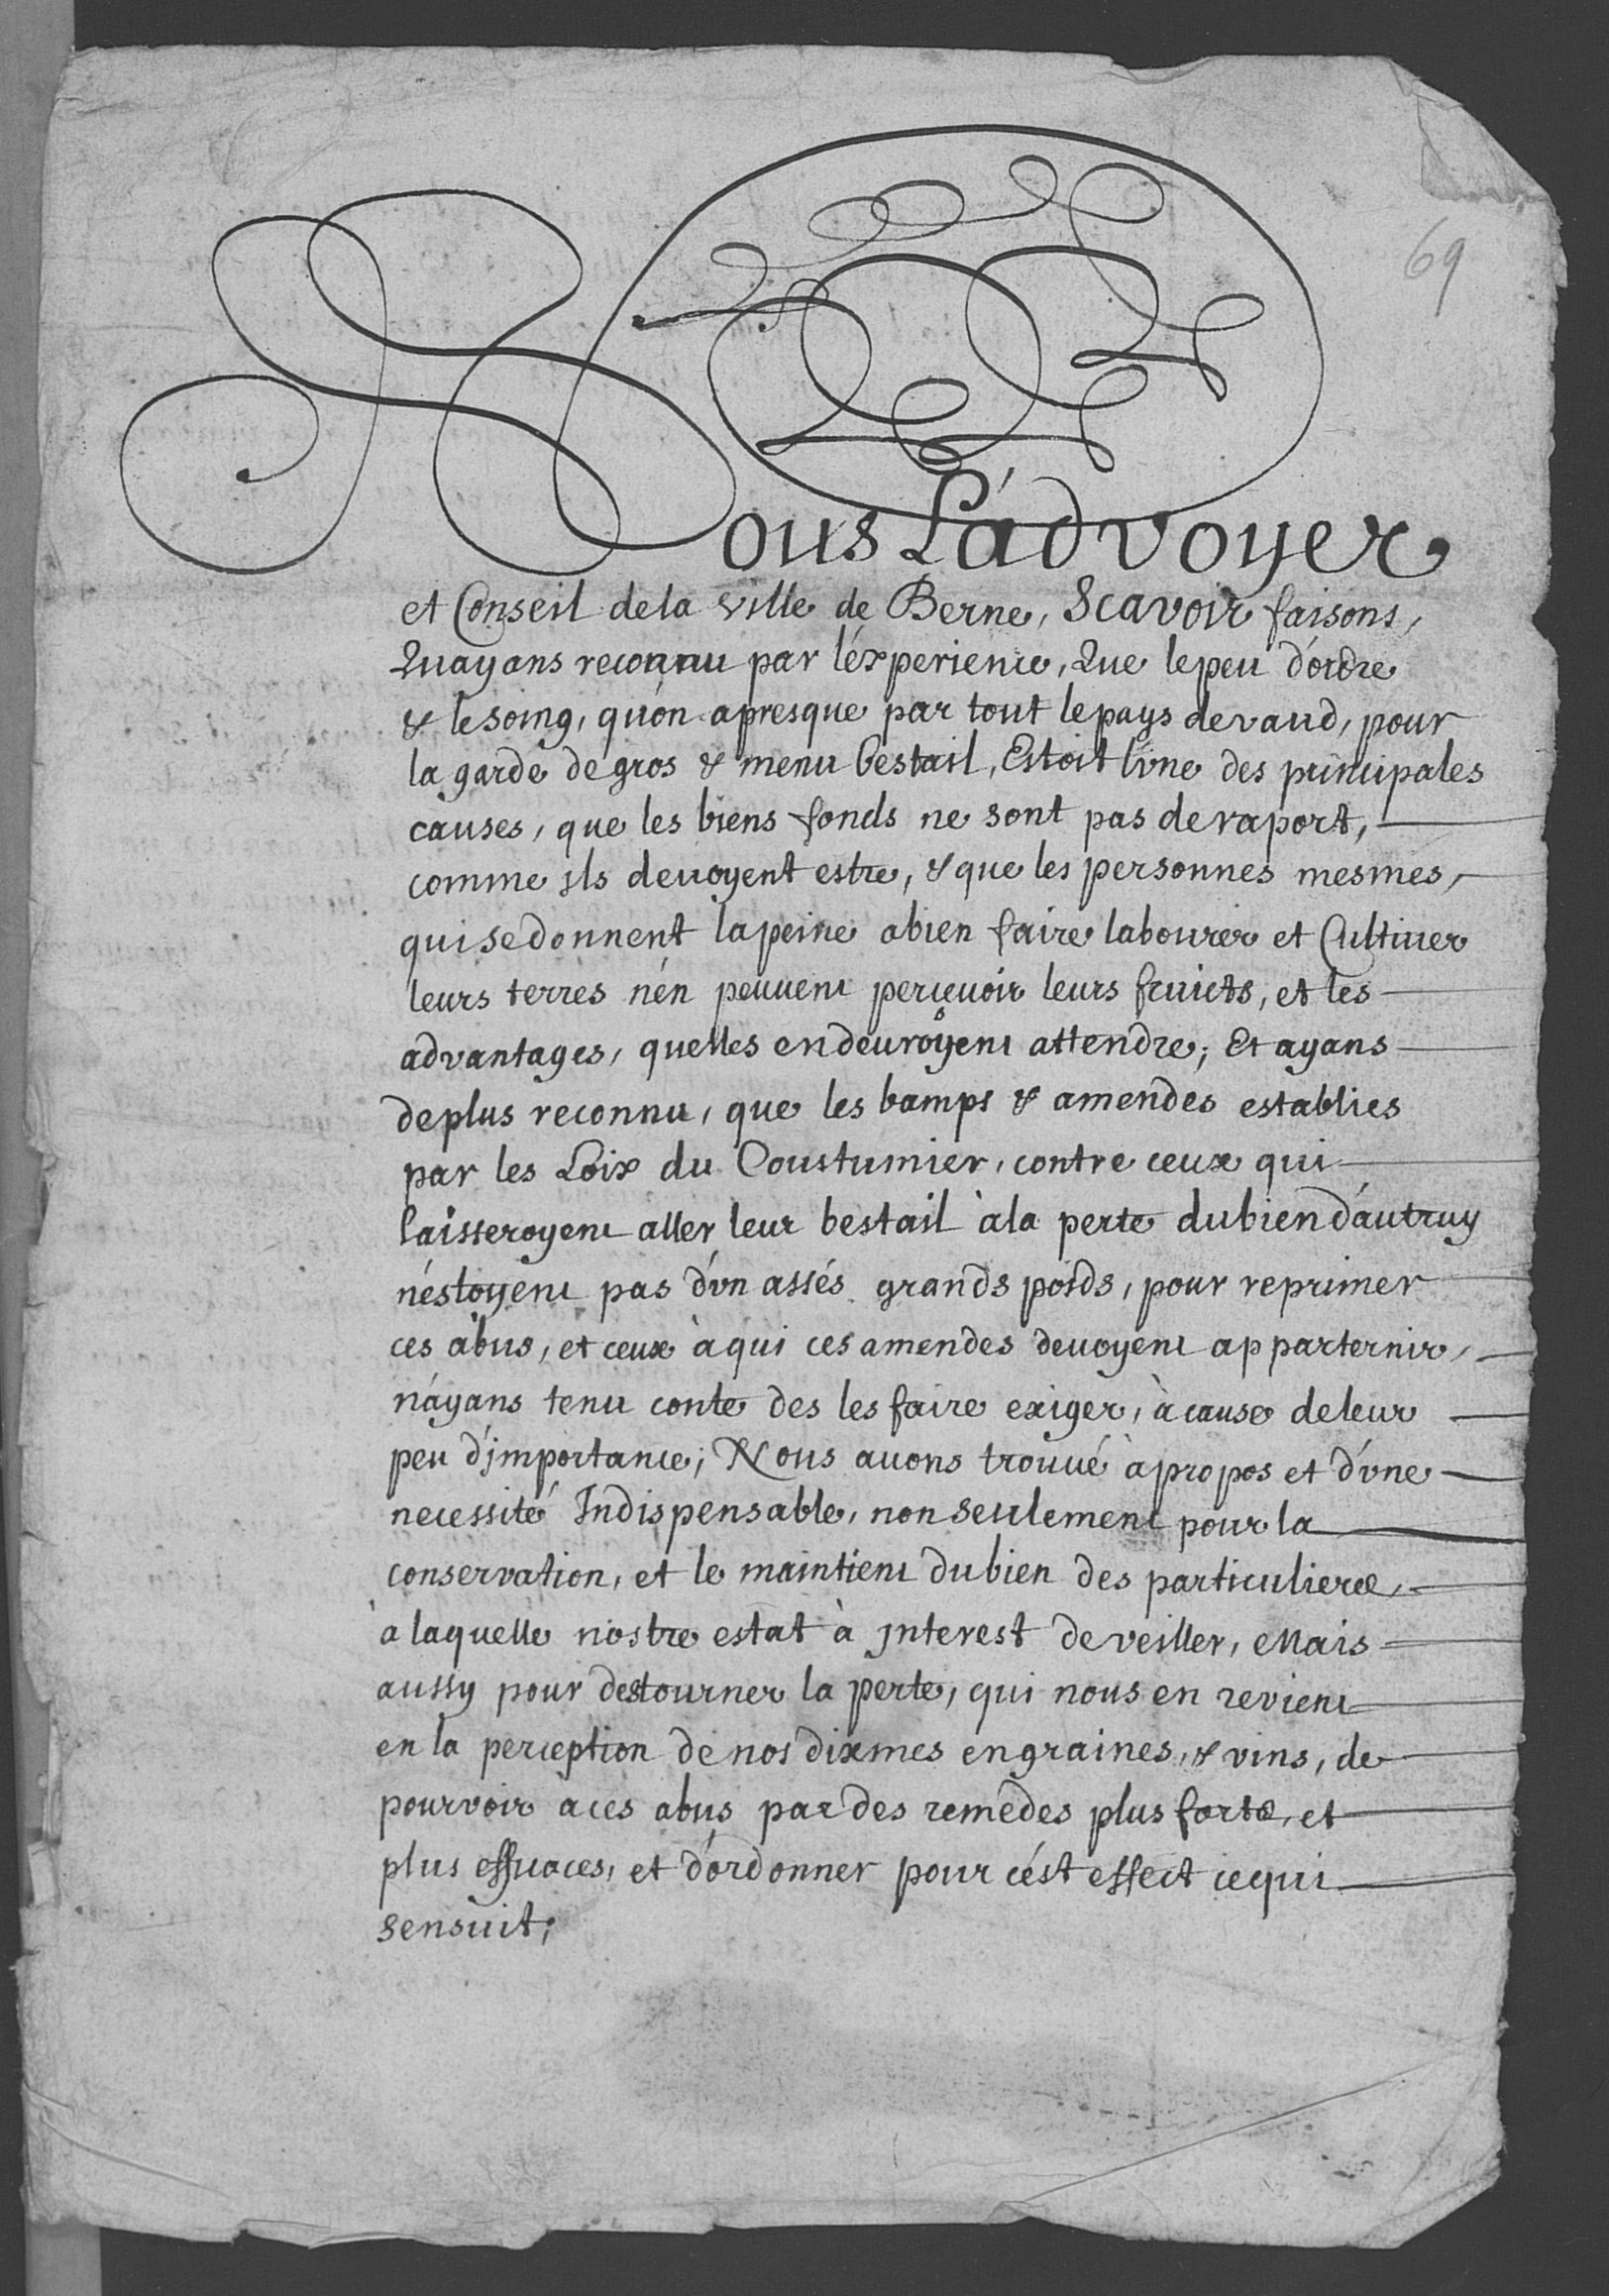 69
Nous L'advoyer
et Conseil de la ville de Berne, Scavoir faisons,
Qu'ayans reconnu par l'éxperience, Que le peu d'ordre
& le soing, qu'on a presque par tout le pays de vaud, pour
la garde de gros & menu bestail, Estoit l'vne des principales
causes, que les biens fonds ne sont pas de raport,
comme ils deuoyent estre, & que les personnes mesmes,
qui se donnent la peine a bien faire labourer et Cultiuer
leurs terres n'én peuuent perceuoir leurs fruicts, et les
advantages, quelles en deuroyent attendre; Et ayans
de plus reconnu, que les bamps & amendes establies
par les Loix du Coustumier, contre ceux qui
laisseroyent aller leur bestail à la perte du bien d'autruy
n'éstoyent pas d'vn assés grands poids, pour reprimer
ces abus, et ceux à qui ces amendes deuoyent apparternir,
n'ayans tenu conte des les faire exiger, à cause de leur
peu d'jmportance; Nous auons trouué à propos et d'vne
necessité Indispensable, non seulement pour la
conservation, et le maintient du bien des particuliers,
à laquelle nostre estat à jnterest de veiller, Mais
aussy pour destourner la perte, qui nous en revient
en la perception de nos dixmes en graines, & vins, de
pourvoir à ces abus par des remedes plus forts, et
plus efficaces, et d'ordonner pour cést effect ce qui
sensuit;